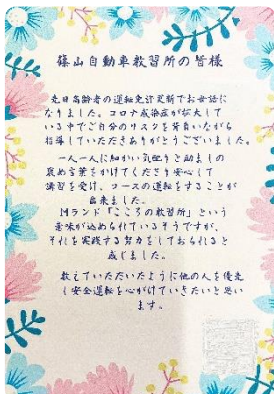 篠山自動車教習所の皆様
先日高齢者の運転免許更新でお世話に
なりました。コロナ感染症が拡大して
いる中でご自分のリスクを背負いながら
指導していただきありがとうございました。
一人一人に細かい気配りと励ましの
褒め言葉をかけてくださり安心して
講習を受け、コースの運転をすることが
出来ました。
Mランド「こころの教習所」という
意味が込められているそうですが、
それを実践する努力をしておられると
感じました。
教えていただいたように他の人を優先
し安全運転を心がけていきたいと思い
ます。